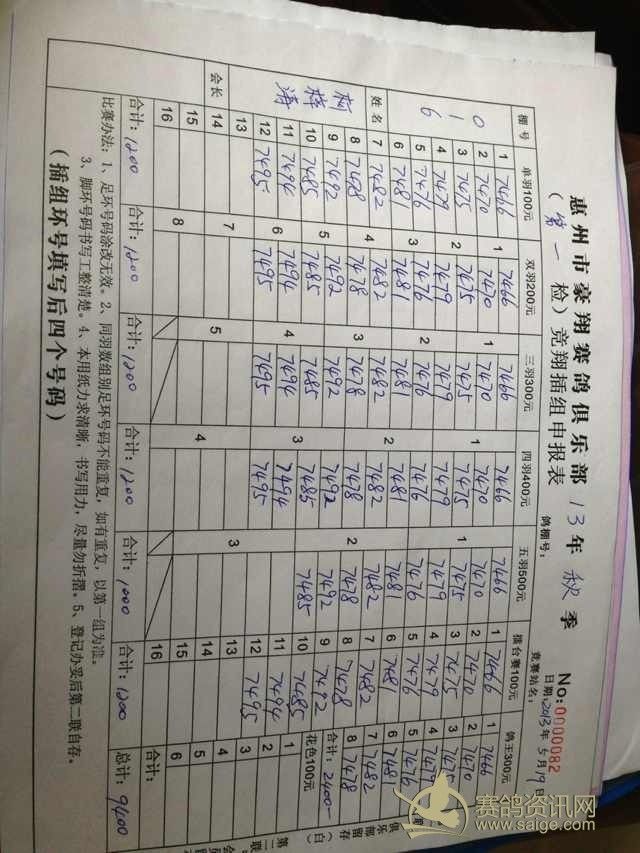 惠州市豪翔赛鸽俱乐部 13年 秋 季
(第一检)竞翔插组申报表
No:0000082
鸽棚号:
竞赛站名:
日期:2013年5月19日
棚号 单羽100元 双羽200元 三羽300元 四羽400元 五羽500元 擂台赛100元 鸽王300元
016
1 7466 7466 7466 7466 7466 1 7466 1 7466
2 7470 7470 7470 7470 7470 2 7470 2 7470
3 7475 7475 7475 7475 7475 3 7475 3 7475
4 7479 7479 7479 7479 7479 4 7479 4 7479
5 7476 7476 7476 7476 7476 5 7476 5 7476
6 7481 7481 7481 7481 7481 6 7481 6 7481
姓名 7 7482 7482 7482 7482 7482 7 7482 7 7482
8 7478 7478 7478 7478 7478 8 7478 8 7478
9 7492 7492 7492 7492 7492 9 7492 合计:2400
10 7485 7485 7485 7485 7485 10 7485 花色100元
11 7494 7494 7494 7494 11 7494 1
12 7495 7495 7495 7495 12 7495 2
13 3
会长 14 4
15 5
16 6
合计:1200 合计:1200 合计:1200 合计:1200 合计:1000 合计:1200 合计:
总计:9400
比赛办法:1、足环号码涂改无效。2、同羽数组别足环号码不能重复,如有重复,以第一组为准。
3、脚环号码书写工整清楚。4、本用纸力求清晰,书写用力,尽量勿折摺。5、登记办妥后第二联自存。
(插组环号填写后四个号码)
赛鸽资讯网
www.saige.com